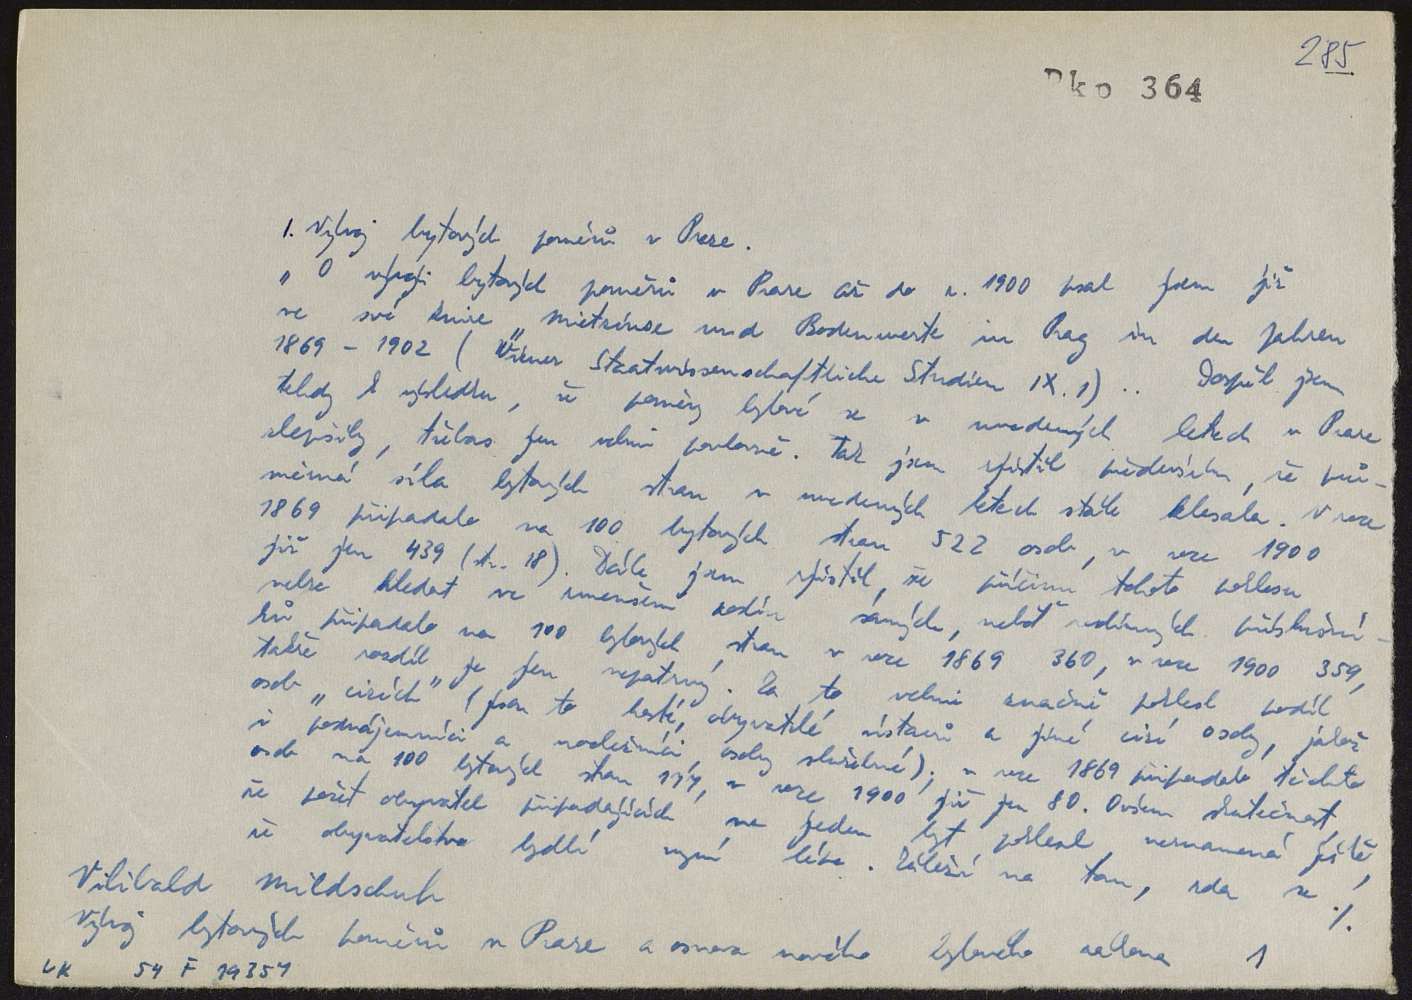 285
Pkp 364
1. Vývoj bytových poměrů v Praze.
„O vývoji bytových poměrů v Praze až do r. 1900 psal jsem již
ve své knize „Mietzinse und Bodenwerte in Prag in den Jahren
1869 - 1902 (Wiener Staatswissenschaftliche Studien IX. 1) .. Dospěl jsem
tehdy k výsledku, že poměry bytové se v uvedených letech v Praze
zlepšily, třebas jen velmi povlovně. Tak jsem zjistil především, že prů-
měrná síla bytových stran v uvedených letech stále klesala. V roce
1869 připadalo na 100 bytových stran 522 osob, v roce 1900
již jen 439 (str. 18). Dále jsem zjistil, že příčinu tohoto poklesu
nelze hledat ve zmenšení rodin samých, neboť rodinných příslušní-
ků připadalo na 100 bytových stran v roce 1869 360, v roce 1900 359,
takže rozdíl je jen nepatrný. Za to velmi značně poklesl podíl
osob „cizích" (jsou to hosté, obyvatelé ústavů a jiné cizí osoby, jakož
i podnájemníci a nocležníci, osoby služebné); v roce 1869 připadalo těchto
osob na 100 bytových stran 177, v roce 1900 již jen 80. Ovšem skutečnost,
že počet obyvatel připadajících na jeden byt poklesl neznamená ještě,
že obyvatelstvo bydlí nyní lépe. Záleží na tom, zda se ./.
Vilibald Mildschuh
Vývoj bytových poměrů v Praze a osnova nového bytového zákona 1
UK 54 F 19351